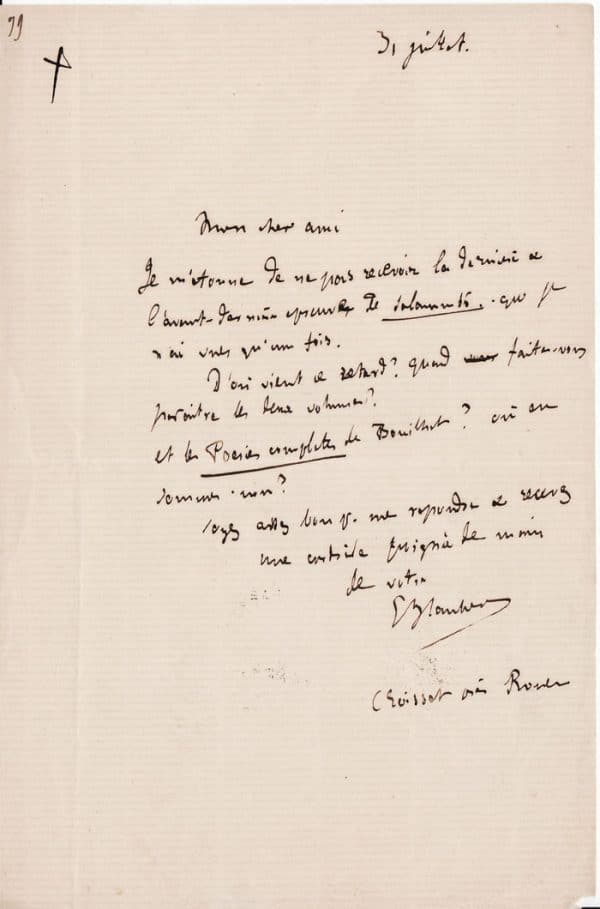 99
31 juillet.
Mon cher ami
Je m'étonne de ne pas recevoir la dernière &
l'avant-dernière epreuve de Salammbô. que je
n'ai vues qu'une fois.
D'où vient ce retard? quand faites-vous
paraître les deux volumes?
et les Poésies complètes de Bouilhet? où en
sommes-nous?
soyez assez bon pr me repondre & recevez
une cordiale poignée de main
de votre
G Flaubert
Croisset près Rouen